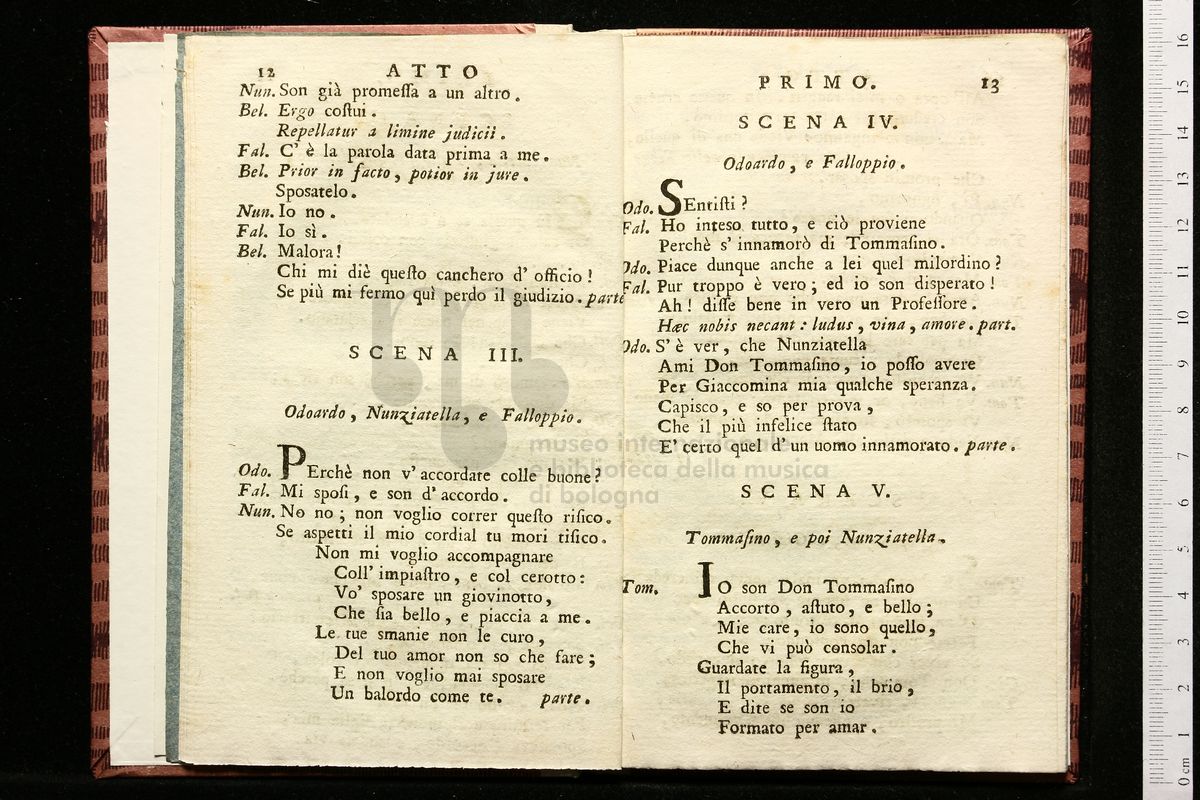 12 ATTO
Nun. Son già promeſſa a un altro.
Bel. Ergo coſtui.
Repellatur a limine judicii.
Fal. C' è la parola data prima a me.
Bel. Prior in facto, potior in jure.
Sposatelo.
Nun. Io no.
Fal. Io sì.
Bel. Malora!
Chi mi diè queſto canchero d' officio!
Se più mi fermo quì perdo il giudizio. parte
SCENA III.
Odoardo, Nunziatella, e Falloppio.
Odo. PErchè non v' accordate colle buone?
Fal. Mi sposi, e son d' accordo.
Nun. No no; non voglio correr queſto riſico.
Se aspetti il mio cordial tu mori tiſico.
Non mi voglio accompagnare
Coll' impiaſtro, e col cerotto:
Vo' sposare un giovinotto,
Che ſia bello, e piaccia a me.
Le tue smanie non le curo,
Del tuo amor non so che fare;
E non voglio mai sposare
Un balordo come te. parte.
PRIMO. 13
SCENA IV.
Odoardo, e Falloppio.
Odo. SEntiſti?
Fal. Ho inteso tutto, e ciò proviene
Perchè s' innamorò di Tommaſino.
Odo. Piace dunque anche a lei quel milordino?
Fal. Pur troppo è vero; ed io son disperato!
Ah! diſſe bene in vero un Profeſſore.
Hæc nobis necant: ludus, vina, amore. part.
Odo. S' è ver, che Nunziatella
Ami Don Tommaſino, io poſſo avere
Per Giaccomina mia qualche speranza.
Capisco, e so per prova,
Che il più infelice ſtato
E' certo quel d' un uomo innamorato. parte.
SCENA V.
Tommaſino, e poi Nunziatella.
Tom. IO son Don Tommaſino
Accorto, aſtuto, e bello;
Mie care, io sono quello,
Che vi può consolar.
Guardate la figura,
Il portamento, il brio,
E dite se son io
Formato per amar.
museo internazionale
e biblioteca della musica
di bologna
0 cm 1 2 3 4 5 6 7 8 9 10 11 12 13 14 15 16